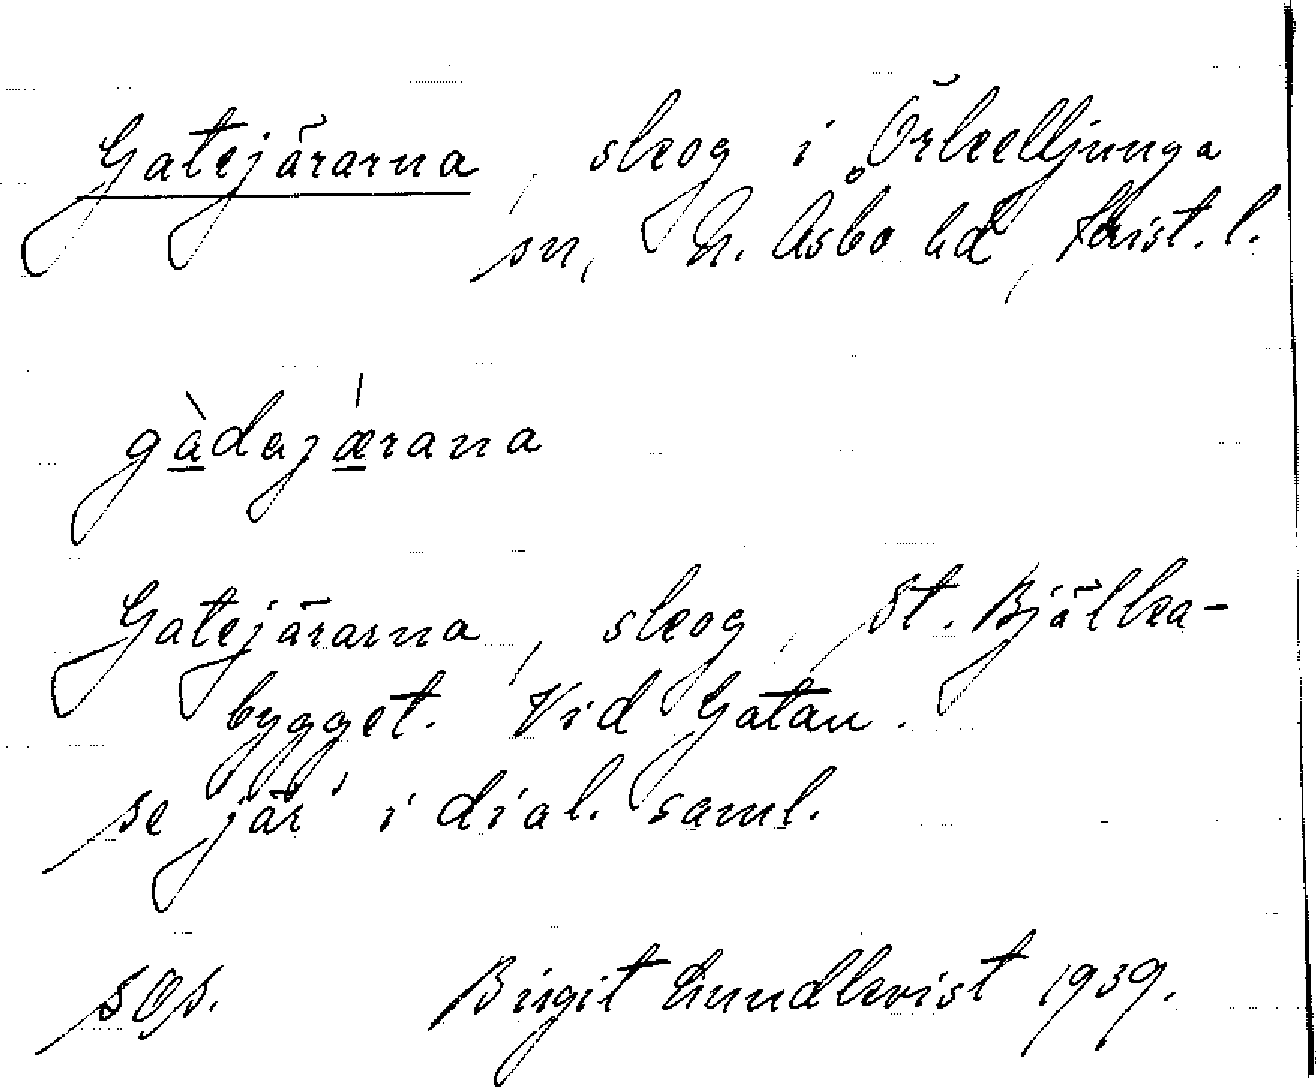 Gatejärarna, skog i Örkelljunga
sn, N. Åsbo hd, Krist. l.
gàdejǽrana
Gatejärarna, skog, St. Bjälka-
bygget. Vid Gatan.
se jär' i dial. saml.
sOs. Birgit Lundkvist 1939.